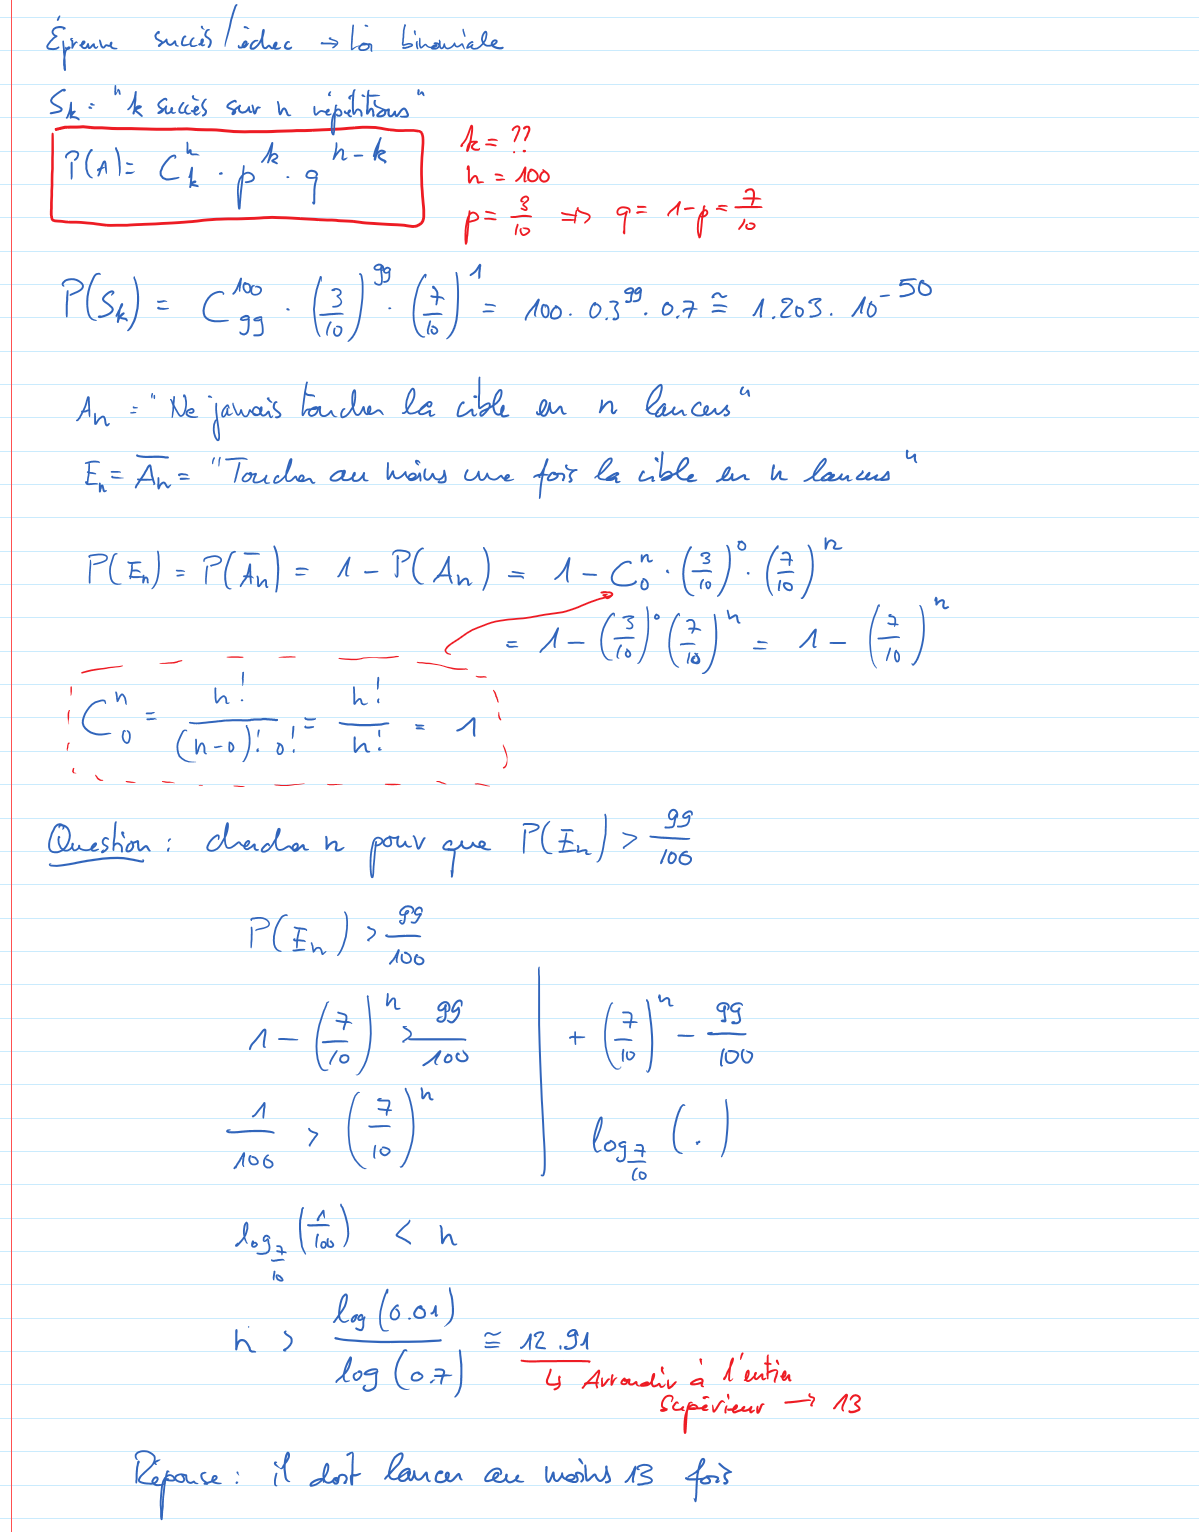 Épreuve succès/échec → Loi binomiale
S_k = "k succès sur n répétitions"
P(A) = C_k^n · p^k · q^{n-k}
k = ??
n = 100
p = 3/10 ⇒ q = 1-p = 7/10
P(S_k) = C_{99}^{100} · (3/10)^{99} · (7/10)^1 = 100 · 0.3^{99} · 0.7 ≅ 1.203 · 10^{-50}
A_n = "Ne jamais toucher la cible en n lancers"
E_n = \overline{A_n} = "Toucher au moins une fois la cible en n lancers"
P(E_n) = P(\overline{A_n}) = 1 - P(A_n) = 1 - C_0^n · (3/10)^0 · (7/10)^n
= 1 - (3/10)^0 (7/10)^n = 1 - (7/10)^n
C_0^n = n!/((n-0)! 0!) = n!/n! = 1
Question : chercher n pour que P(E_n) > 99/100
P(E_n) > 99/100
1 - (7/10)^n > 99/100 | + (7/10)^n - 99/100
1/100 > (7/10)^n | log_{7/10} ( . )
log_{7/10} (1/100) < n
n > log(0.01)/log(0.7) ≅ 12.91
↳ Arrondir à l'entier
supérieur → 13
Réponse : il doit lancer au moins 13 fois